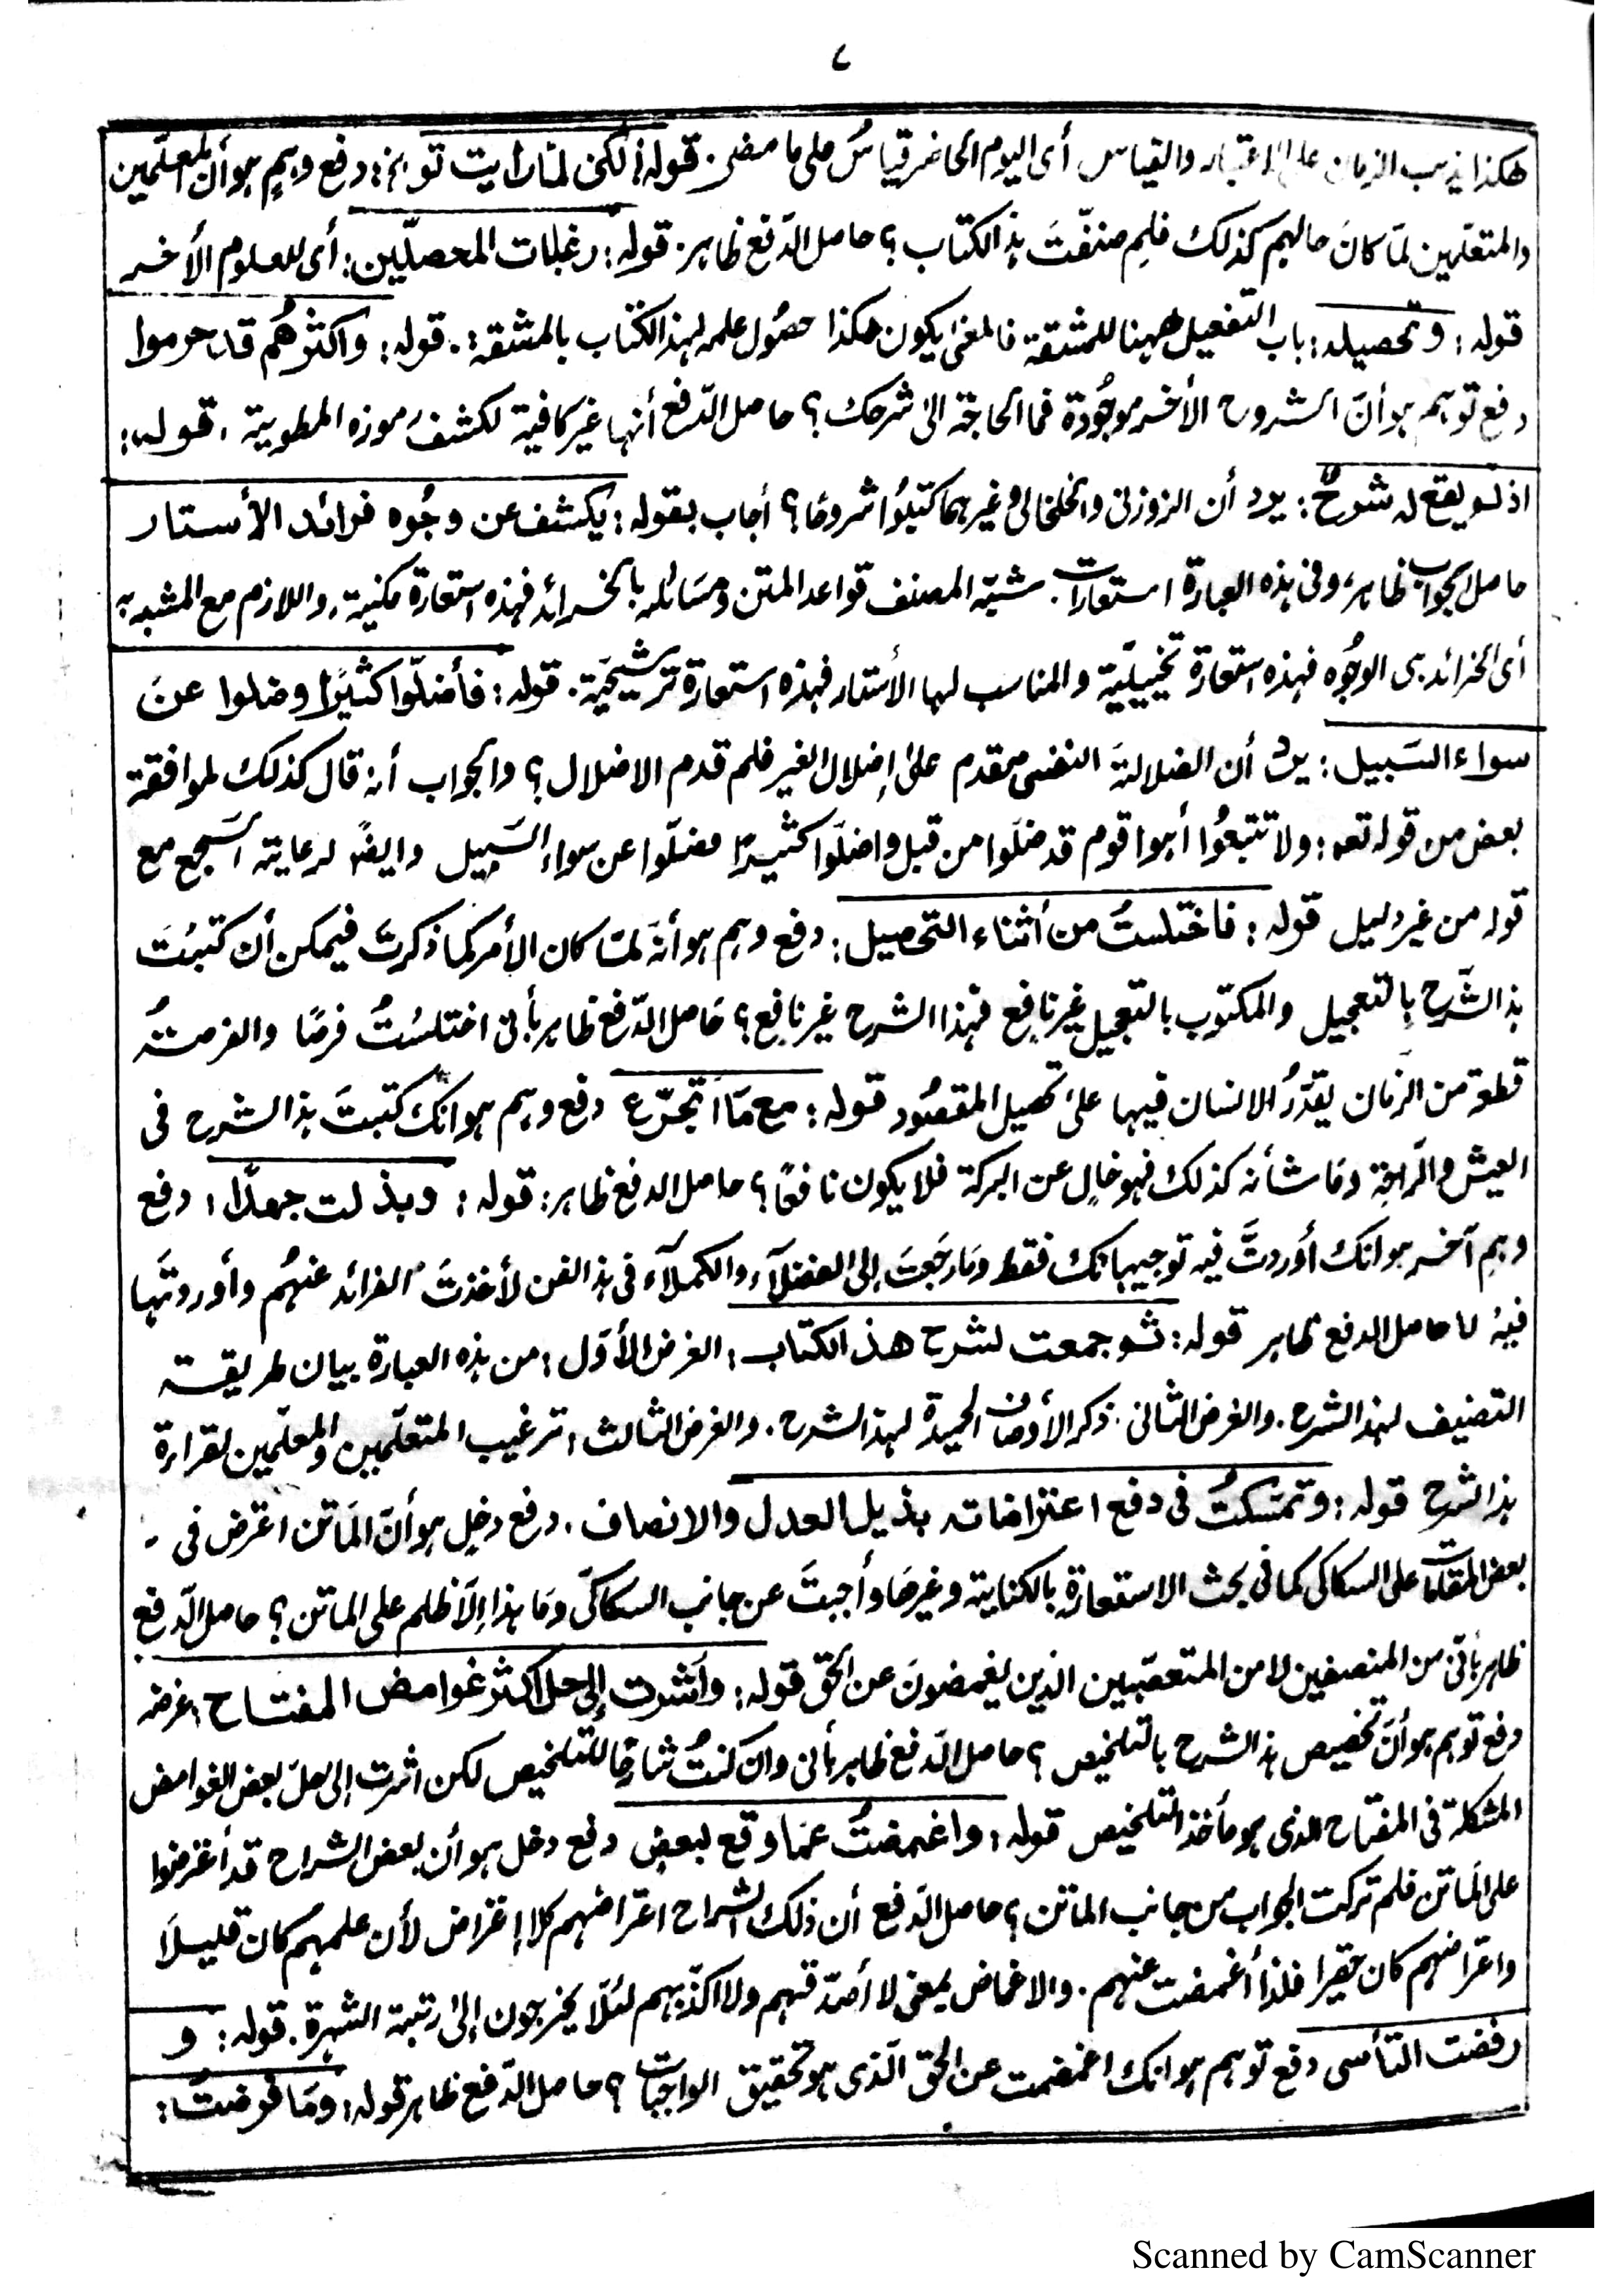 ٧
هكذا يذهب الزمان على الاعتبار والقياس أى اليوم الحاضر قياسٌ على ما مضى. قوله: لكنى لما رأيت تو الخ: دفع وهمٍ هو أن المعلّمين
والمتعلّمين لمّا كانَ حالهم كذلك فلِم صنّفتَ هذا الكتاب؟ حاصل الدّفع ظاهر. قوله: رغبات المحصلّين: أى للعلوم الأخر
قوله: وتحصيله: باب التفعيل ههنا للمشقة فالمعنى يكون هكذا حصُول علمه لهذا الكتاب بالمشقة. قوله: واكثرهُم قد حرموا
دفع توهم هو أنّ الشروح الأخر موجُودة فما الحاجة الىٰ شرحك؟ حاصل الدّفع أنها غير كافية لكشف رموزه المطوية. قوله:
اذ لم يقع له شروحٌ: يرد أن الزوزنى والخلخالى وغيرهما كتبُوا شروحًا؟ أجاب بقوله: يكشف عن وجُوه فرائد الأستار
حاصل الجواب ظاهر، وفى هذه العبارة استعارات. شبّه المصنف قواعد المتن ومسَائله بالخرائد فهذه استعارة مكنية، واللازم مع المشبه به
أى الخرائد هى الوجُوه فهذه استعارة تخييليّة والمناسب لها الأستار فهذه استعارة ترشيحيّة. قوله: فأضلّوا كثيرًا وضلوا عن
سواء السَبيل: يرد أن الضلالةَ النفسى مقدم علىٰ اِضلال الغير فلم قدم الاضلال؟ والجواب أنه قال كذلك لموافقة
بعض من قوله تعه: ولا تتبعُوا أهوا قوم قد ضلَوا من قبل واضلَوا كثيرًا وضلّوا عن سواء السّبيل وايضًا لرعاية السجع مع
قوله من غير دليل قوله: فاختلستُ من أثناء التحصيل: دفع وهم هو أنهَ لمّا كان الأمر كما ذكرت فيمكن أن كتبتَ
هذا الشرح بِالتعجيل والمكتوب بالتعجيل غير نافع فهذا الشرح غير نافع؟ حَاصل الدّفع ظاهر بأنى اختلسْتُ فرصًا والفرصةُ
قطعة من الزمَان يقدّرُ الانسان فيها علىٰ تحصيل المقصُود قوله: مع مَا أتجرّع دفع وهم هو انك كتبتَ هذا الشرح فى
العيش والرّاحة ومَا شأنه كذلك فهو خالٍ عن البركة فلا يكون نافعًا؟ حاصل الدفع ظاهر: قوله: وبذلت جهدًا: دفع
وهم آخر هو انك أوردتَّ فيه توجيهاتك فقط ومَا رجَعتَ إلى الفضلآء والكملآء فى هذا الفن لأخذتَ الفرائد عنهُم وأوردتَّها
فيهُ لا حاصل الدفع ظاهر قوله: ثم جمعت لشرح هذا الكتاب: الغرض الأوّل: من هذه العبارة بيان طريقة
التصنيف لهذا الشرح. والغرض الثانى: ذكر الأوصاف الحميدة لهذا الشرح. والغرض الثالث: ترغيب المتعلّمين والمعلّمين لقراءة
هذا الشرح قوله: وتمسّكتُ فى دفع اعتراضاته بذيل العدل والانصاف. دفع دخلٍ هو أنّ المَاتن اعترض فى
بعض المقامات على السكاكى كما فى بحث الاستعارة بالكناية وغيرهَا وأجبتَ عن جانب السكاكّى ومَا هذا اِلاَّ ظلم على الماتن؟ حاصل الدّفع
ظاهر بأنّى من المنصفين لا من المتعصّبين الذين يغمضونَ عن الحق قوله: وأشرت إلى حل اكثر غوامض المفتاح: غرضه
دفع توهم هو أنّ تخصيص هذا الشرح بالتلخيص؟ حاصل الدّفع ظاهر بأنى وان كنتُ شارحًا للتلخيص لكن اشرت إلى حلّ بعض الغوامض
المشكلة فى المفتاح الذى هو مأخذ التلخيص قوله: واغمضتُ عمَا وقع لبعض دفع دخل هو أن بعض الشراح قد أعترضوا
على الماتن فلم تركت الجواب من جانب الماتن؟ حاصل الدّفع أن ذلك الشراح اعتراضهم كلا إعتراض لأن علمهم كان قليلاً
واعتراضهم كان حقيرا فلذا أغمضت عنهم. والاغماض بمعنى لا أصدّقهم ولا اكذّبهم لئلّا يخرجون إلىٰ رتبة الشهرة. قوله: و
رفضت التأسى دفع توهم هو انك اغمضت عن الحق الّذى هو تحقيق الواجبات؟ حاصل الدّفع ظاهر قوله: ومَا فرضت:
Scanned by CamScanner